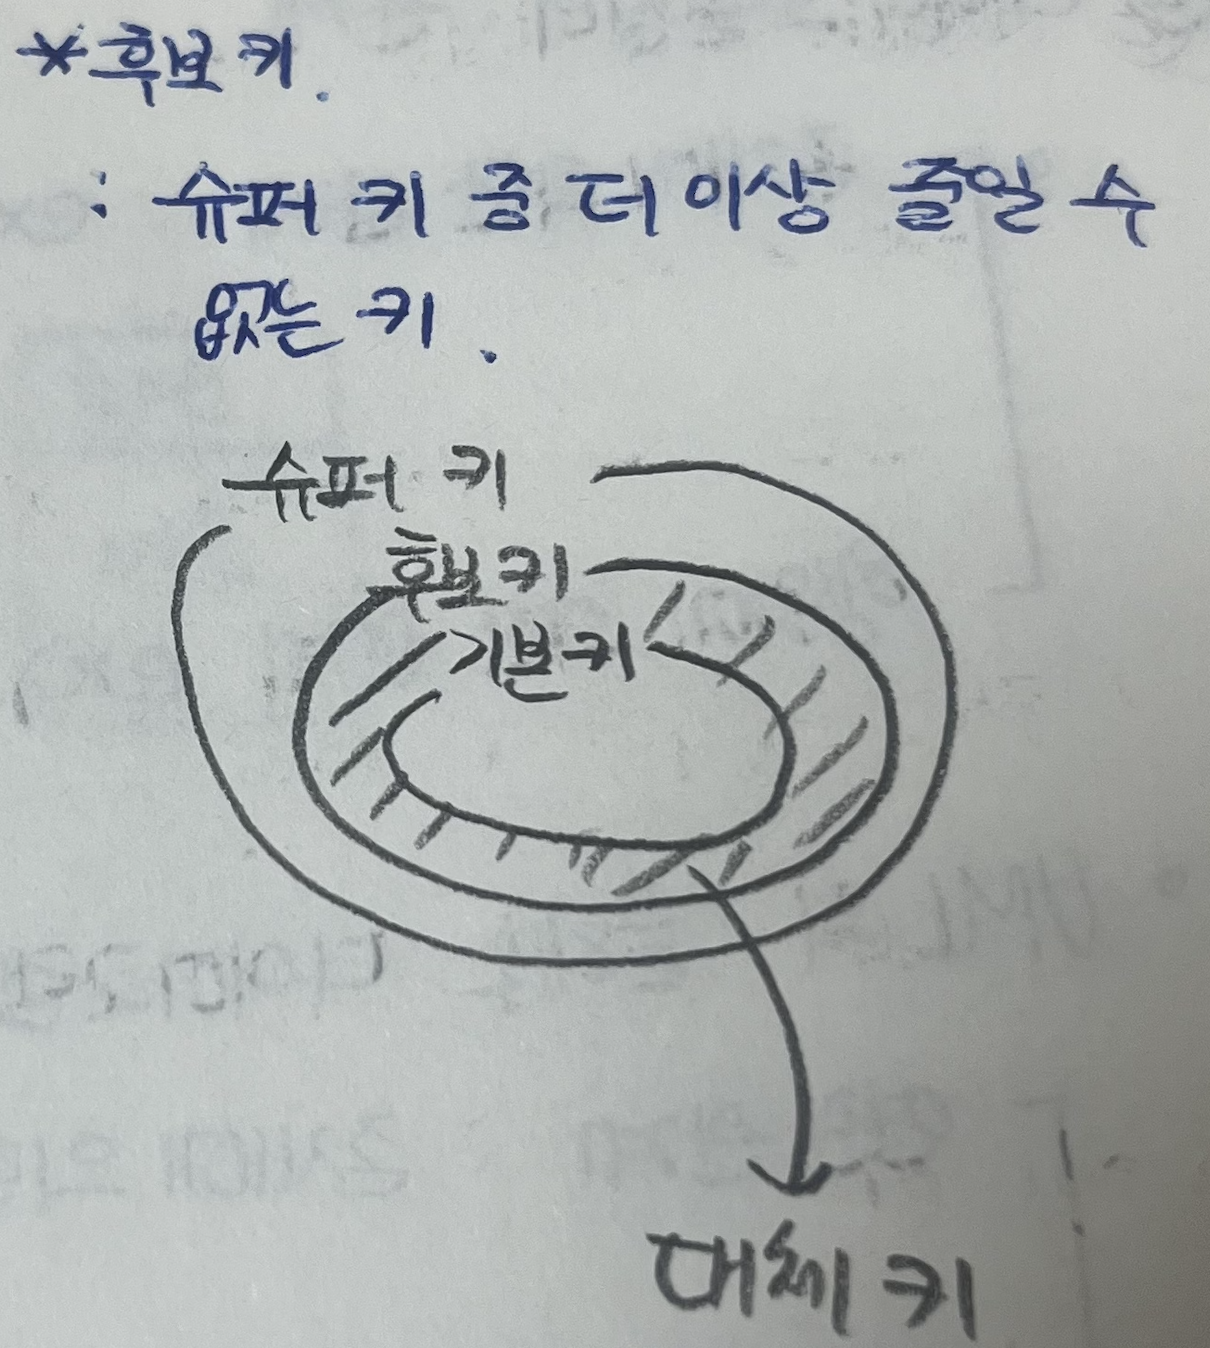 *후보키.
: 슈퍼 키 중 더 이상 줄일 수
없는 키.
슈퍼 키
후보키
기본키
대체 키